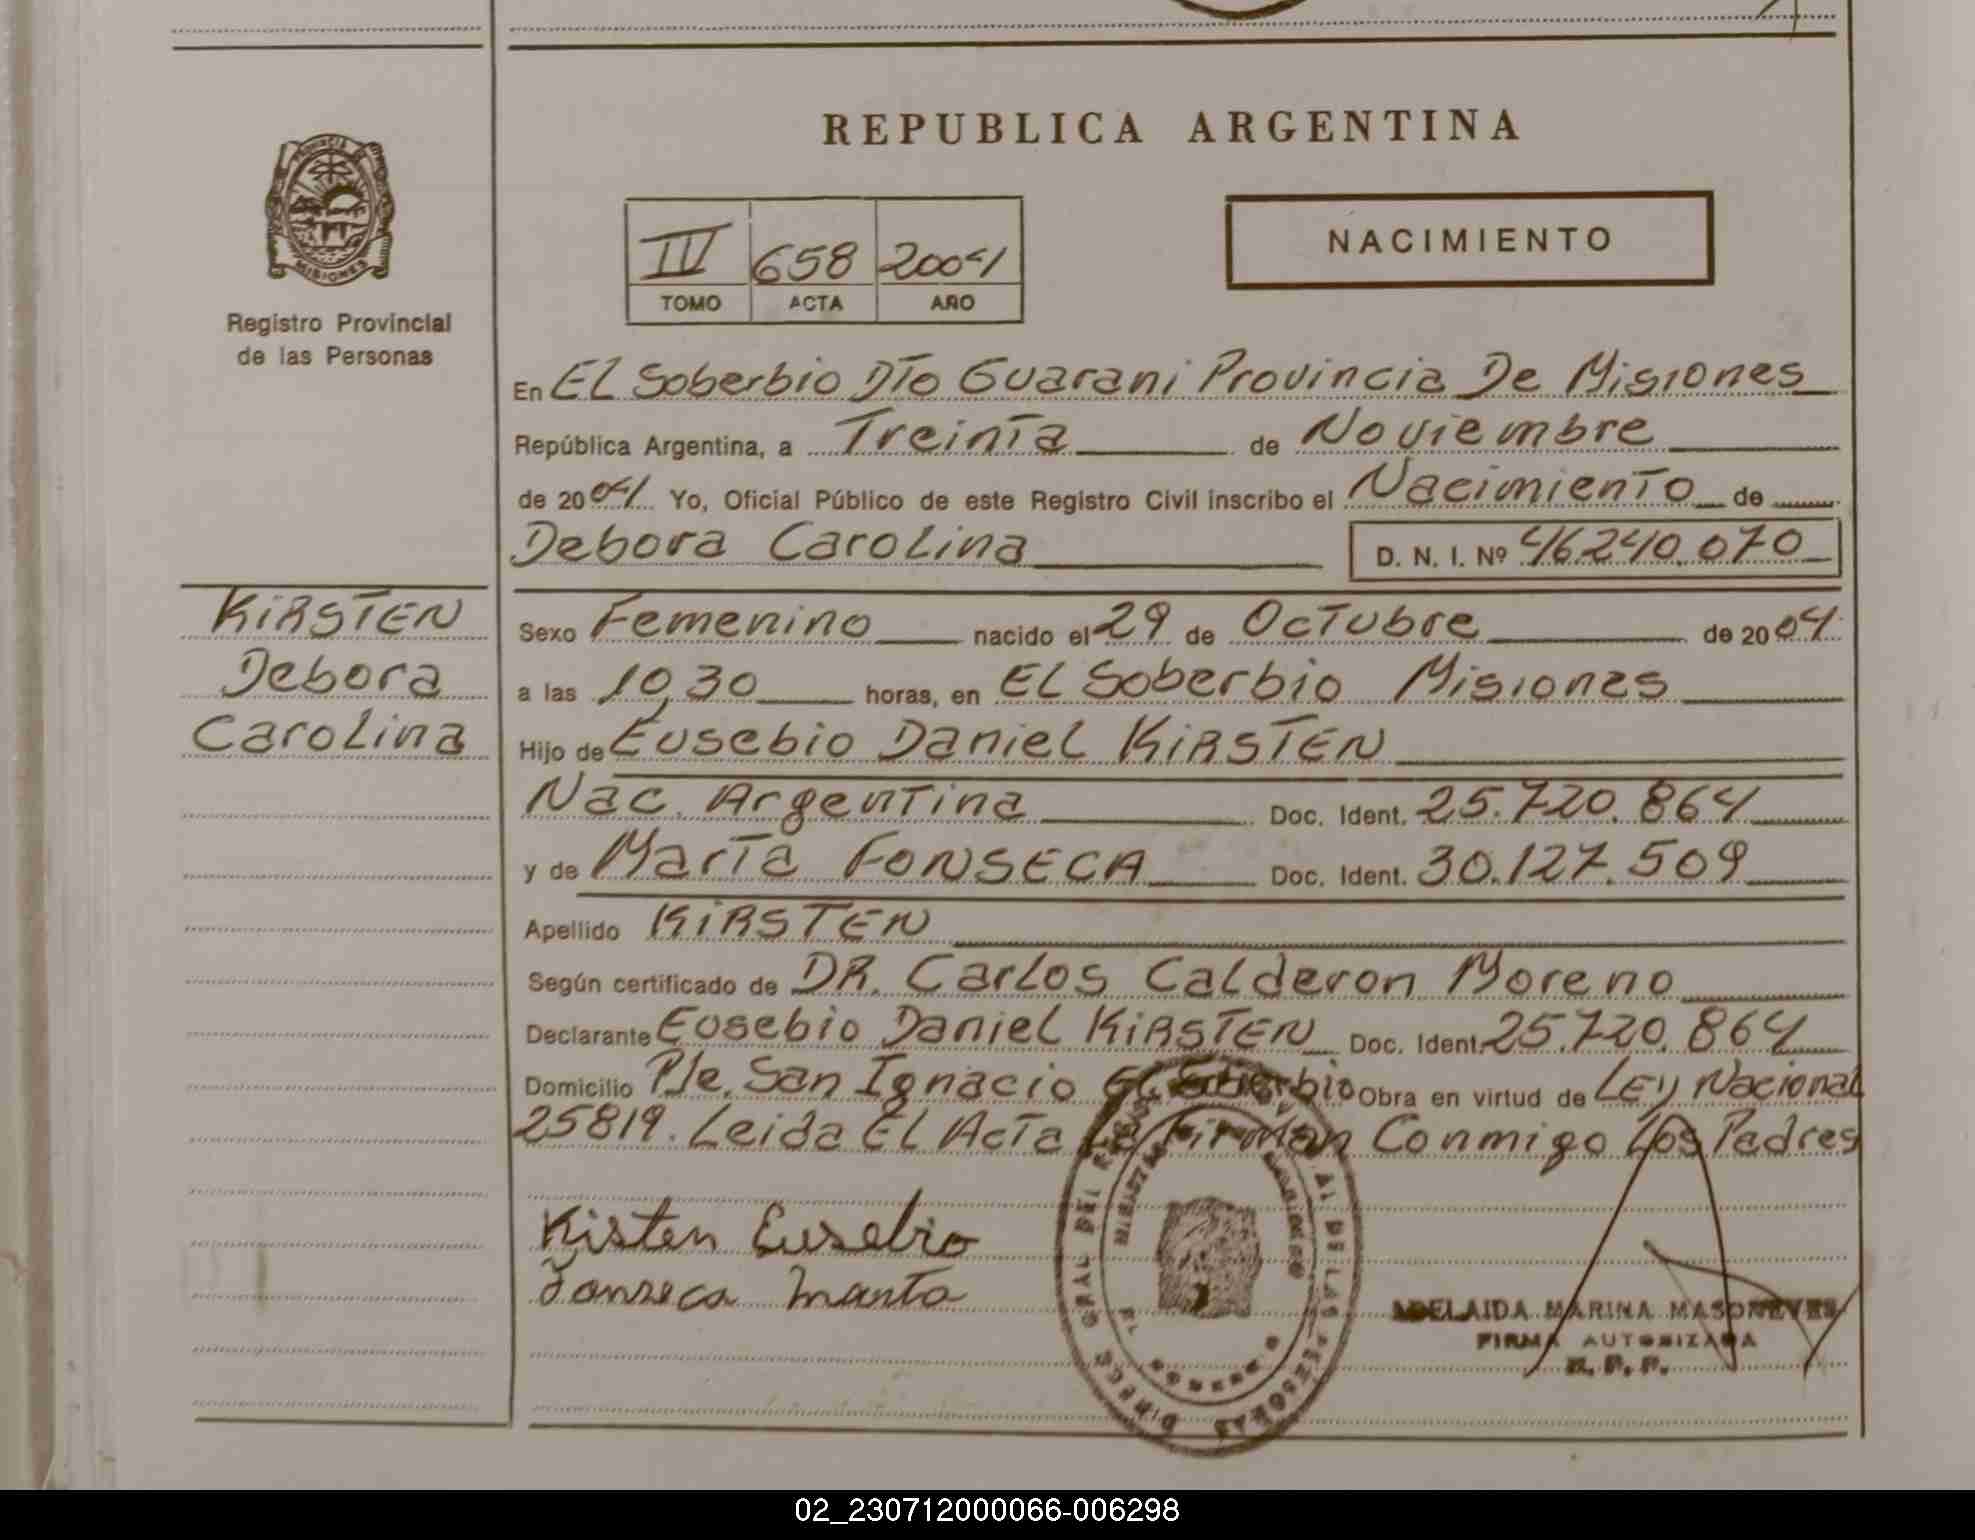 REPUBLICA ARGENTINA
PROVINCIA DE
MISIONES
Registro Provincial
de las Personas
III 658 2004
TOMO ACTA AÑO
NACIMIENTO
En EL Soberbio DTo Guarani Provincia De Misiones
República Argentina, a Treinta de Noviembre
de 2004 Yo, Oficial Público de este Registro Civil inscribo el Nacimiento de
Debora Carolina D. N. I. Nº 46240.070
KiRSTEN
Debora
Carolina
Sexo Femenino nacido el 29 de Octubre de 2004
a las 10,30 horas, en EL Soberbio Misiones
Hijo de Eusebio Daniel KiRSTEN
Nac. Argentina Doc. Ident. 25.720.864
y de Marta FONSECA Doc. Ident. 30.127.509
Apellido KiRSTEN
Según certificado de DR. Carlos Calderon Moreno
Declarante Eusebio Daniel KiRSTEN Doc. Ident. 25.720.864
Domicilio Pje. San Ignacio EL Soberbio Obra en virtud de LEy Nacional
25819. Leida EL Acta La Firman Conmigo Los Padres
Kisten Eusebio
Fonseca Marta
ADELAIDA MARINA MASONEVES
FIRMA AUTORIZADA
R. P. P.
02_230712000066-006298